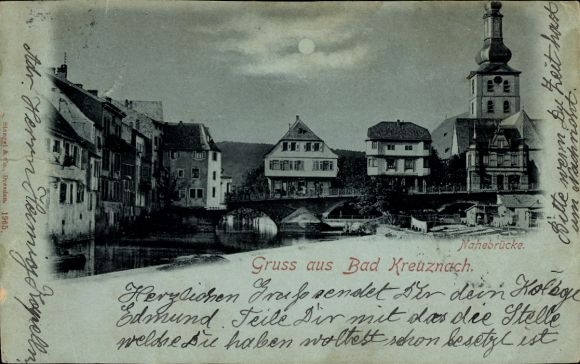 Nahebrücke.
Gruss aus Bad Kreuznach.
Herzlichen Gruß sendet Dir dein Kolege
Edmund Teile Dir mit das die Stelle
welche Du haben woltest schon besetzt ist
Bitte wenn Du Zeit hast
Adr. Herrn
Stengel & Co., Dresden 1965.